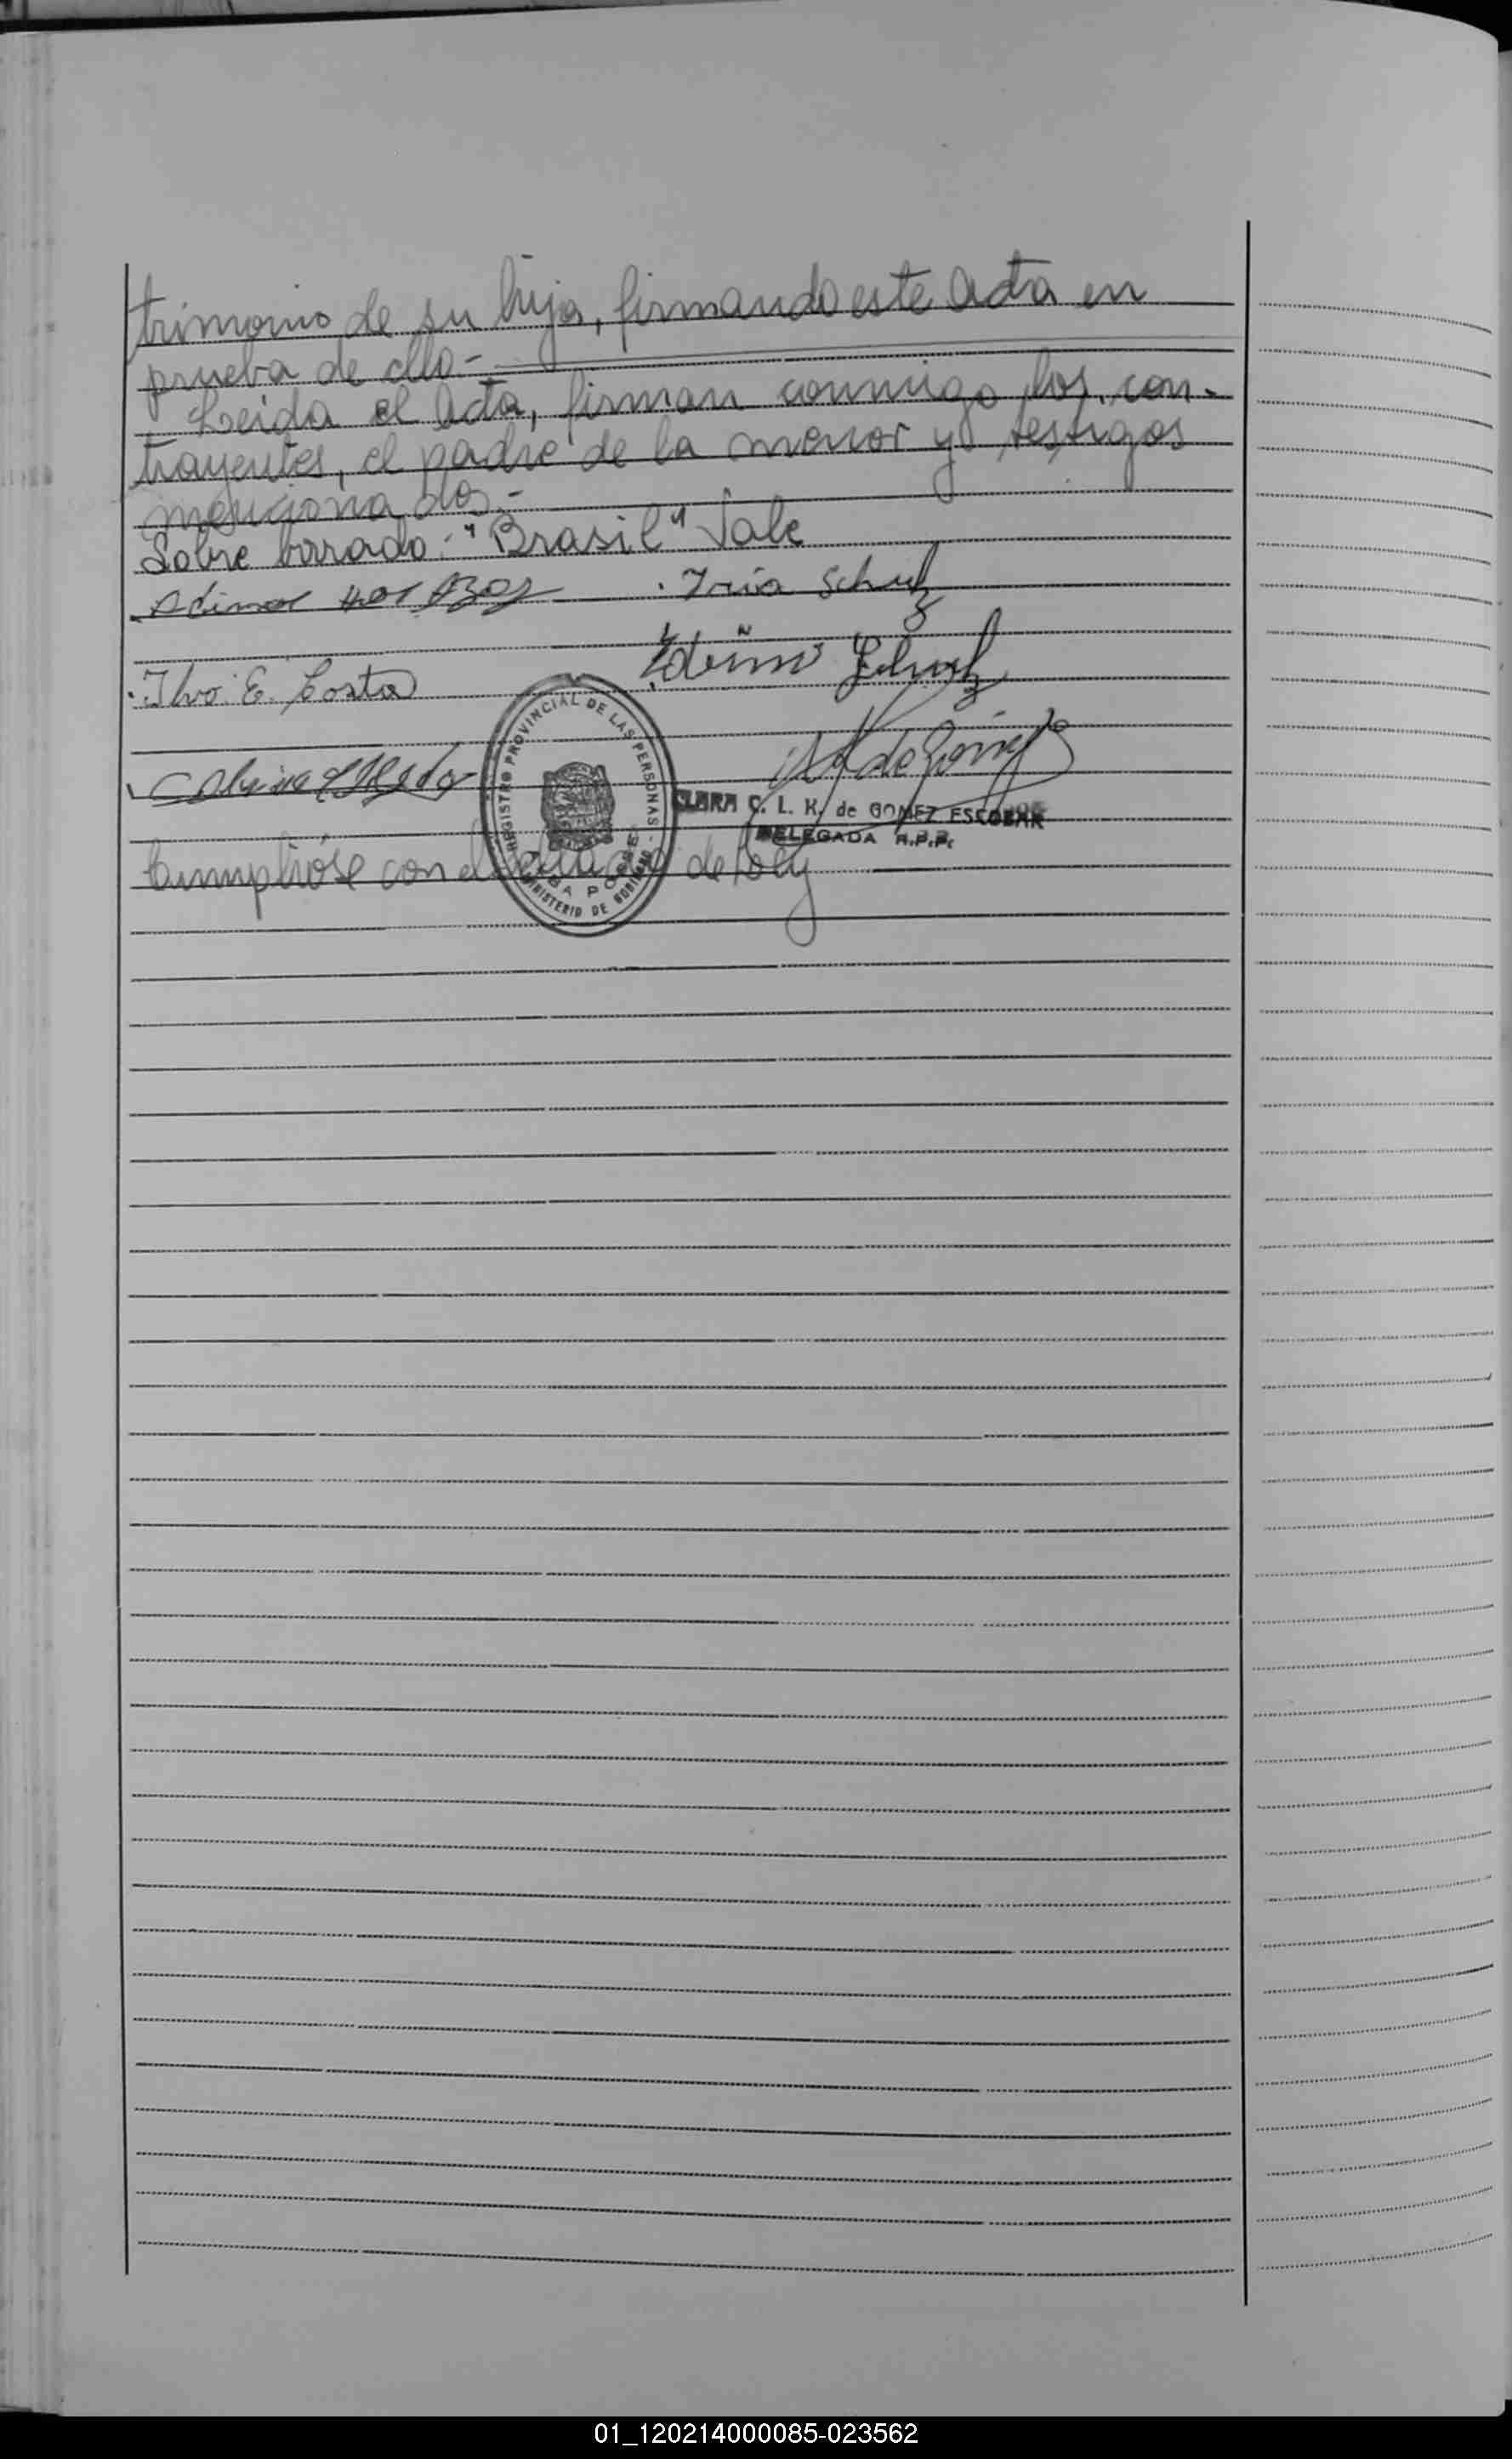 trimonio de su hija, firmando este acta en
prueba de ello.-
Leida el acta, firman conmigo los con-
trayentes, el padre de la menor y testigos
mencionados.-
Sobre borrado: "Brasil" Vale
Iria Schulz
Ilvo E. Costa
Schulz
REGISTRO PROVINCIAL DE LAS PERSONAS -
MINISTERIO DE GOBIERNO
CLARA C. L. K. de GOMEZ ESCOBAR
DELEGADA R.P.P.
Cumplióse con el de Ley
01_120214000085-023562